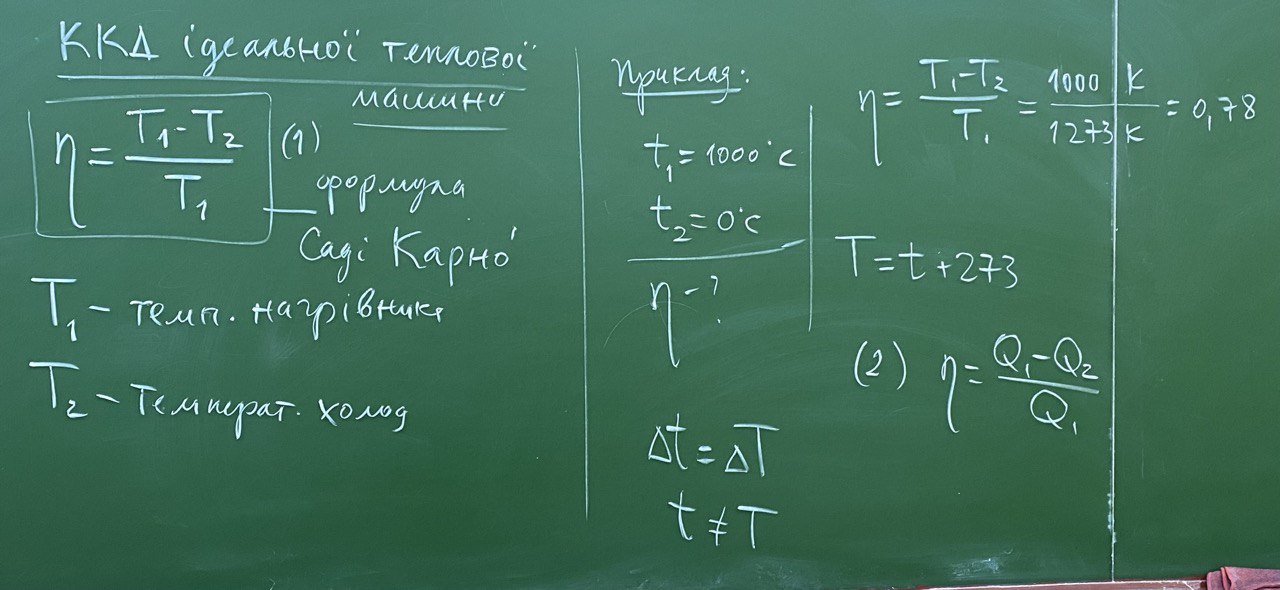 ККД ідеальної теплової
машини
η = (T₁ - T₂) / T₁ (1)
формула
Саді Карно́
T₁ - темп. нагрівника
T₂ - Температ. холод
Приклад:
t₁ = 1000°C
t₂ = 0°C
η - ?
Δt = ΔT
t ≠ T
η = (T₁ - T₂) / T₁ = 1000 K / 1273 K = 0,78
T = t + 273
(2) η = (Q₁ - Q₂) / Q₁